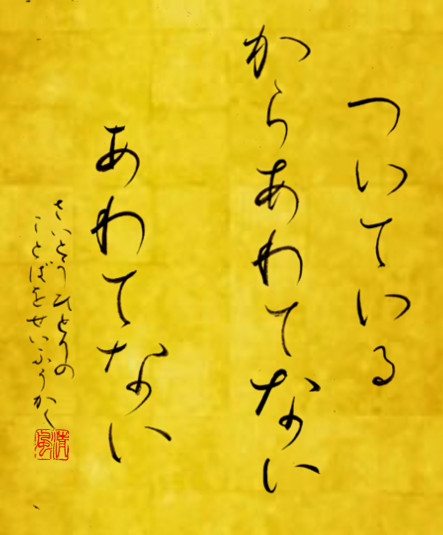 ついている
からあわてない
あわてない
さいとうひとりの
ことばをせいふうかく
清風